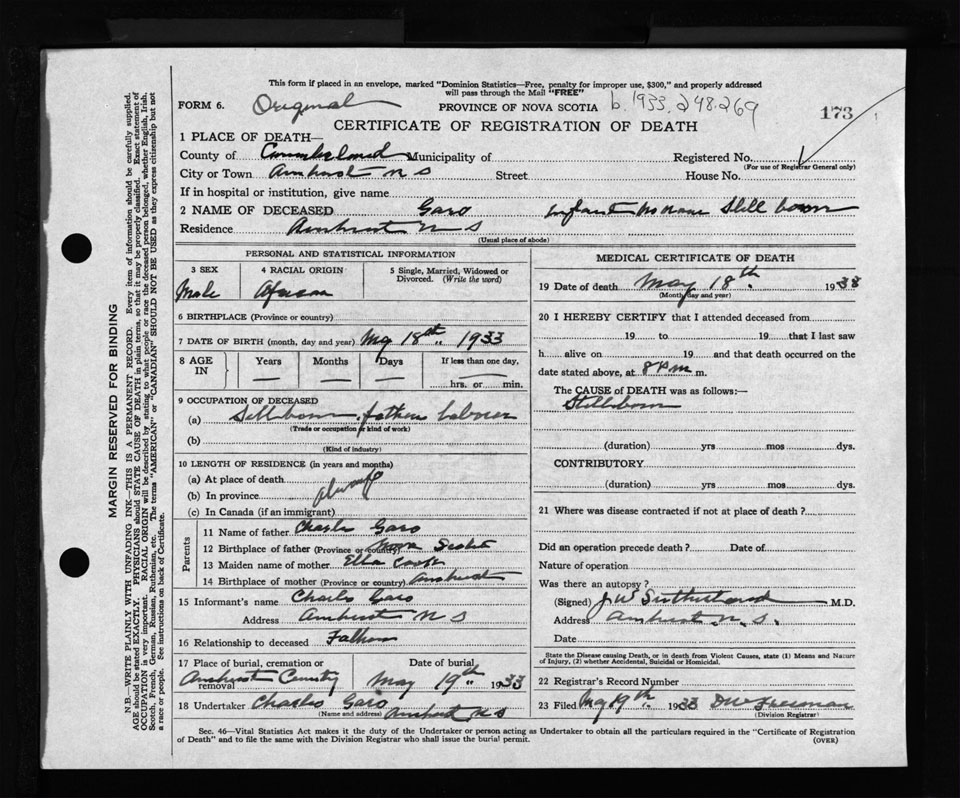 This form if placed in an envelope, marked "Dominion Statistics—Free, penalty for improper use, $300," and properly addressed
will pass through the Mail "FREE"
FORM 6. Original PROVINCE OF NOVA SCOTIA b. 1933. 248.269 173
CERTIFICATE OF REGISTRATION OF DEATH
1 PLACE OF DEATH—
County of Cumberland Municipality of Registered No.
(For use of Registrar General only)
City or Town Amherst N S Street House No.
If in hospital or institution, give name
2 NAME OF DECEASED Garo Infant No Name Still born
Residence Amherst N S
(Usual place of abode)
PERSONAL AND STATISTICAL INFORMATION
3 SEX 4 RACIAL ORIGIN 5 Single, Married, Widowed or Divorced. (Write the word)
Male African
6 BIRTHPLACE (Province or country)
7 DATE OF BIRTH (month, day and year) May 18th 1933
8 AGE IN Years Months Days If less than one day,
— — — hrs. or min.
9 OCCUPATION OF DECEASED
(a) Stillborn father laborer
(Trade or occupation or kind of work)
(b)
(Kind of industry)
10 LENGTH OF RESIDENCE (in years and months)
(a) At place of death
(b) In province always
(c) In Canada (if an immigrant)
Parents
11 Name of father Charles Garo
12 Birthplace of father (Province or country) Nova Scotia
13 Maiden name of mother Ella Cook
14 Birthplace of mother (Province or country) Amherst
15 Informant's name Charles Garo
Address Amherst N S
16 Relationship to deceased Father
17 Place of burial, cremation or removal Date of burial
Amherst Cemetery May 19th 1933
18 Undertaker Charles Garo
(Name and address) Amherst N S
MEDICAL CERTIFICATE OF DEATH
19 Date of death May 18th. 1933
(Month, day and year)
20 I HEREBY CERTIFY that I attended deceased from
19 to 19 that I last saw
h alive on 19 and that death occurred on the
date stated above, at 8 P m m.
The CAUSE of DEATH was as follows:—
Stillborn
(duration) yrs mos dys.
CONTRIBUTORY
(duration) yrs mos dys.
21 Where was disease contracted if not at place of death?
Did an operation precede death? Date of
Nature of operation
Was there an autopsy?
(Signed) J W Sutherland M.D.
Address Amherst. N. S.
Date
State the Disease causing Death, or in death from Violent Causes, state (1) Means and Nature
of Injury, (2) whether Accidental, Suicidal or Homicidal.
22 Registrar's Record Number
23 Filed May 19th. 1933 D W Freeman
(Division Registrar)
Sec. 46—Vital Statistics Act makes it the duty of the Undertaker or person acting as Undertaker to obtain all the particulars required in the "Certificate of Registration
of Death" and to file the same with the Division Registrar who shall issue the burial permit. (OVER)
MARGIN RESERVED FOR BINDING
N.B.—WRITE PLAINLY WITH UNFADING INK—THIS IS A PERMANENT RECORD. Every item of information should be carefully supplied.
AGE should be stated EXACTLY. PHYSICIANS should STATE CAUSE OF DEATH in plain terms, so that it may be properly classified. Exact statement of
OCCUPATION is very important. RACIAL ORIGIN will be described by stating to what people or race the deceased person belonged, whether English, Irish,
Scotch, French, German, Russian, Ruthenian, etc. The terms "AMERICAN" or "CANADIAN" SHOULD NOT BE USED as they express citizenship but not
a race or people. See instructions on back of Certificate.